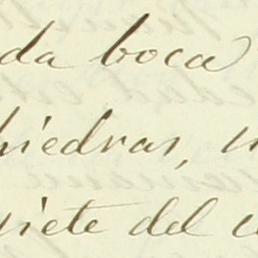 da boca
hiedras,
siete del